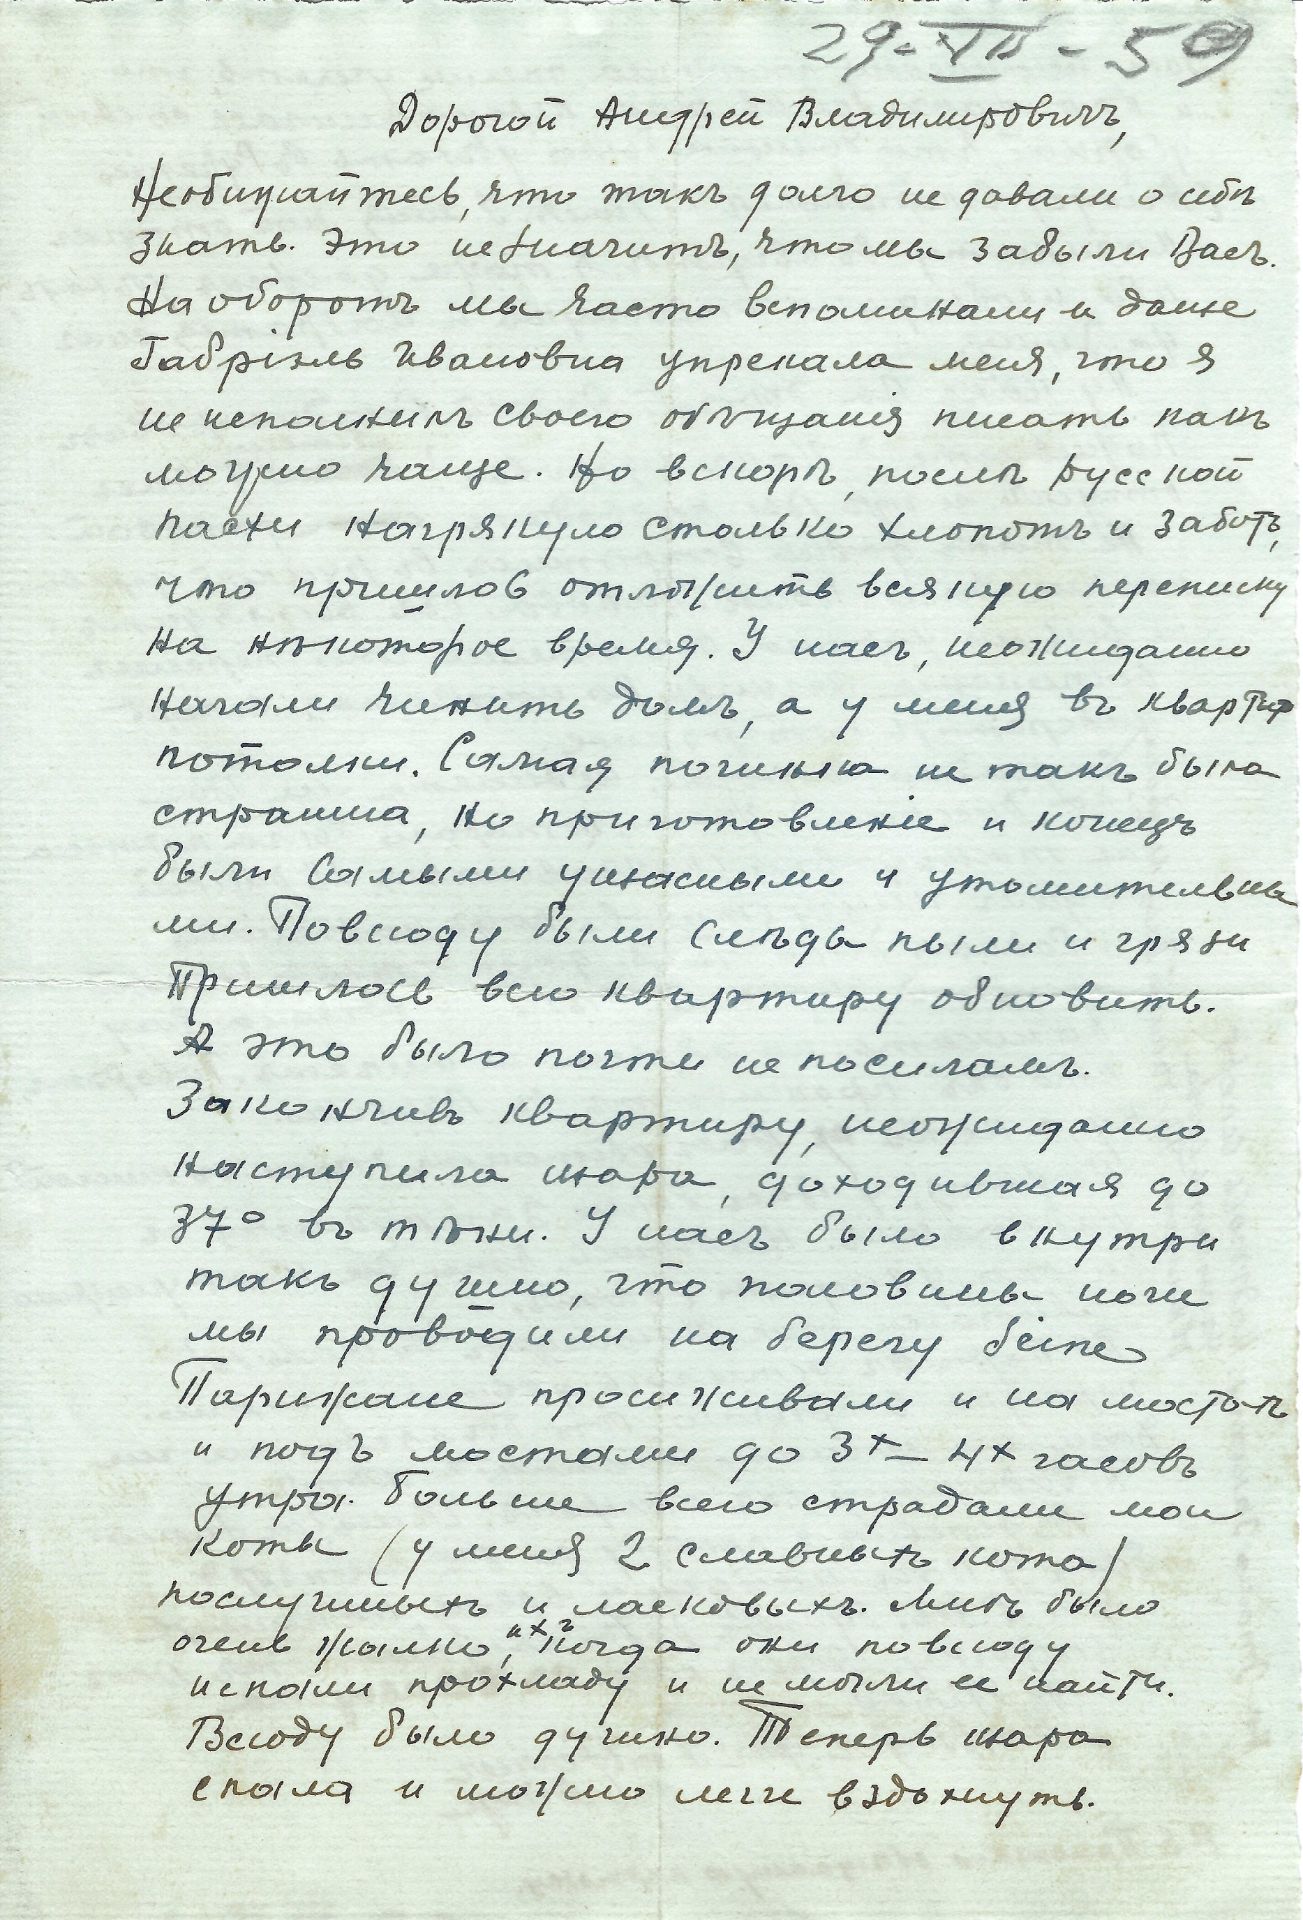 29-VII-59
Дорогой Андрей Владимировичъ,
Необижайтесь, что такъ долго не давали о себѣ
знать. Это незначитъ, что мы забыли Васъ.
Наоборотъ мы часто вспоминали и даже
Габріэль Ивановна упрекала меня, что я
не исполнилъ своего обѣщанія писать какъ
можно чаще. Но вскорѣ, послѣ русской
пасхи нагрянуло столько хлопотъ и заботъ,
что пришлось отложить всякую переписку
на нѣкоторое время. У насъ, неожиданно
начали чинить домъ, а у меня въ квартирѣ
потолки. Самая починка не такъ была
страшна, но приготовленіе и конецъ
были самыми ужасными и утомительны
ми. Повсюду были слѣды пыли и грязи
Пришлось всю квартиру обновить.
А это было почти непосиламъ.
Закончивъ квартиру, неожиданно
наступила жара, доходившая до
37° въ тѣни. У насъ было внутри
такъ душно, что половины ночи
мы проводили на берегу Сены
Парижане просиживали и на мостахъ
и подъ мостами до 3х-4х часовъ
утра. Больше всего страдали мои
коты (у меня 2 славныхъ кота)
послушныхъ и ласковыхъ. Мнѣ было
очень жалко, ихъ когда они повсюду
искали прохладу и не могли ее найти.
Всюду было душно. Теперь жара
спала и можно легче вздохнуть.